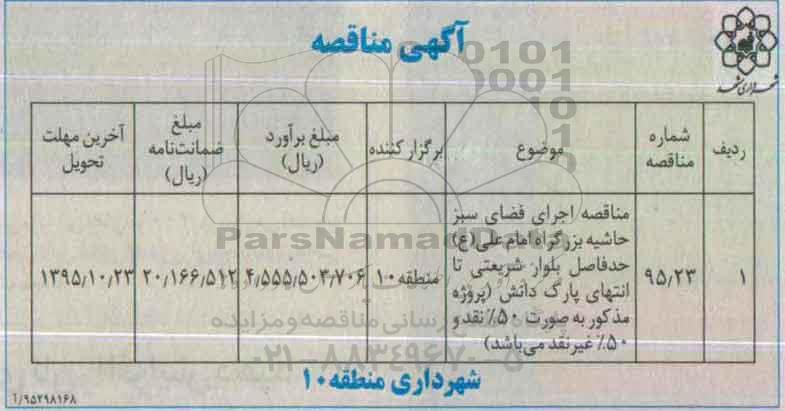 آگهی مناقصه
شهرداری مشهد
ردیف
شماره مناقصه
موضوع
برگزار کننده
مبلغ برآورد (ریال)
مبلغ ضمانت‌نامه (ریال)
آخرین مهلت تحویل
۱
۹۵٫۲۳
مناقصه اجرای فضای سبز
حاشیه بزرگراه امام علی(ع)
حدفاصل بلوار شریعتی تا
انتهای پارک دانش (پروژه
مذکور به صورت ۵۰٪ نقد و
۵۰٪ غیر نقد می‌باشد)
منطقه ۱۰
۴٫۵۵۵٫۵۰۳٫۷۰۶
۲۰٫۱۶۶٫۵۱۲
۱۳۹۵٫۱۰٫۲۳
شهرداری منطقه ۱۰
۹۵۲۹۸۱۶۸/آ
ParsNamadData
۰۲۱-۸۸۳۴۹۶۷۰-۵